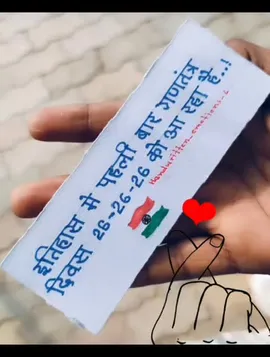 इतिहास में पहली बार गणतंत्र
दिवस 26-26-26 को आ रहा है..!
Handwritten_emotions_2